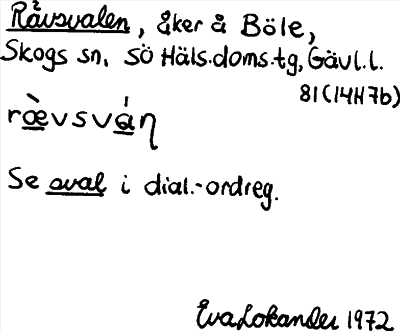 Rävsvalen, åker å Böle,
Skogs sn, SÖ Häls.doms.tg, Gävl.l.
81 (14H7b)
rævsváη
Se sval i dial.-ordreg.
Eva Lokander 1972